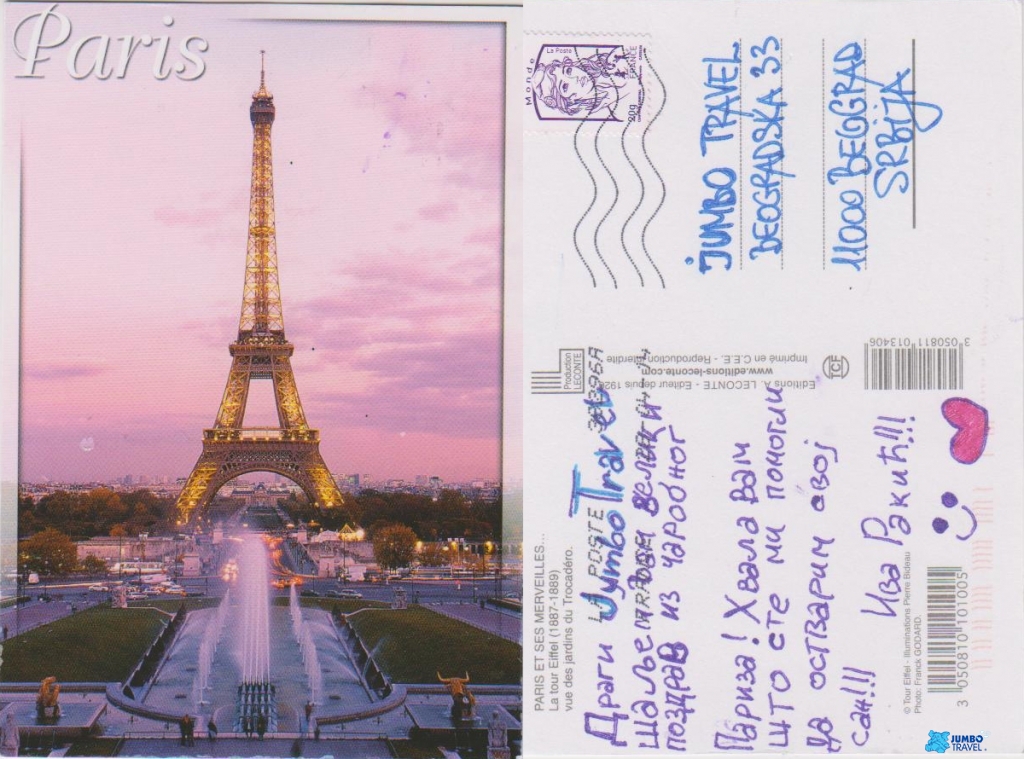 Paris
La Poste
Monde
20g
FRANCE
JUMBO TRAVEL
BEOGRADSKA 33
11000 BEOGRAD
SRBIJA
Production
LECONTE
Editions A. LECONTE - Editeur depuis 1920
www.editions-leconte.com
Imprimé en C.E.E. - Reproduction interdite
3 050811 013406
LA POSTE 38396A
PARIS ET SES MERVEILLES...
La tour Eiffel (1887-1889)
vue des jardins du Trocadéro.
Драги Jumbo Travel
шаљем вам велики
поздрав из чаробног
Париза! Хвала вам
што сте ми помогли
да остварим овој
сан!!!
Ива Ракић!!!
© Tour Eiffel - Illuminations Pierre Bideau
Photo: Franck GODARD.
3 050810 101005
JUMBO
TRAVEL